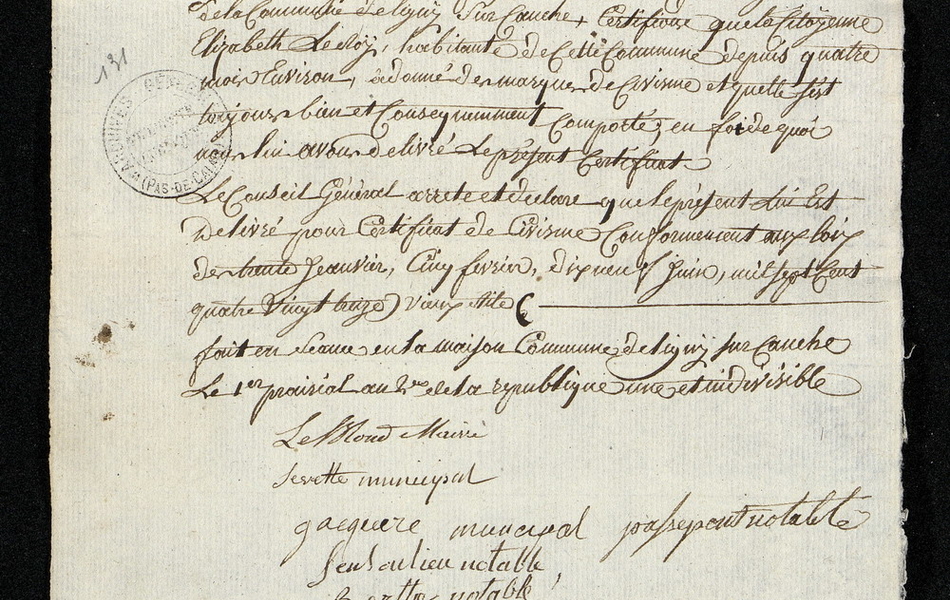 de la Commune de ligny Sur Canche, Certifions que la Citoyenne
Elizabeth Le Roÿ, habitante de Cette Commune depuis quatre
mois Environ, a donné des marques de Civisme et quelle s'est
toujours bien et Consequemment Comporté; en foi de quoi
nous lui avons delivré Le présent Certificat.
Le Conseil Général arrete et declare que le présent Lui Est
Delivré pour Certificat de Civisme Conformement aux loix
des trente Jeanvier, Cinq fevrier, dix neuf Juin, mil sept Cent
quatre Vingt treize) vieux stile (
fait en séance en la maison Commune de ligny sur Canche
Le 1er prairial an 2me de la republique une et indivisible
Le Blond Maire
municipal
gacquere municipal passepont notable
notable
notable
131
ARCHIVES GÉNÉRALES
(PAS-DE-CALAIS)